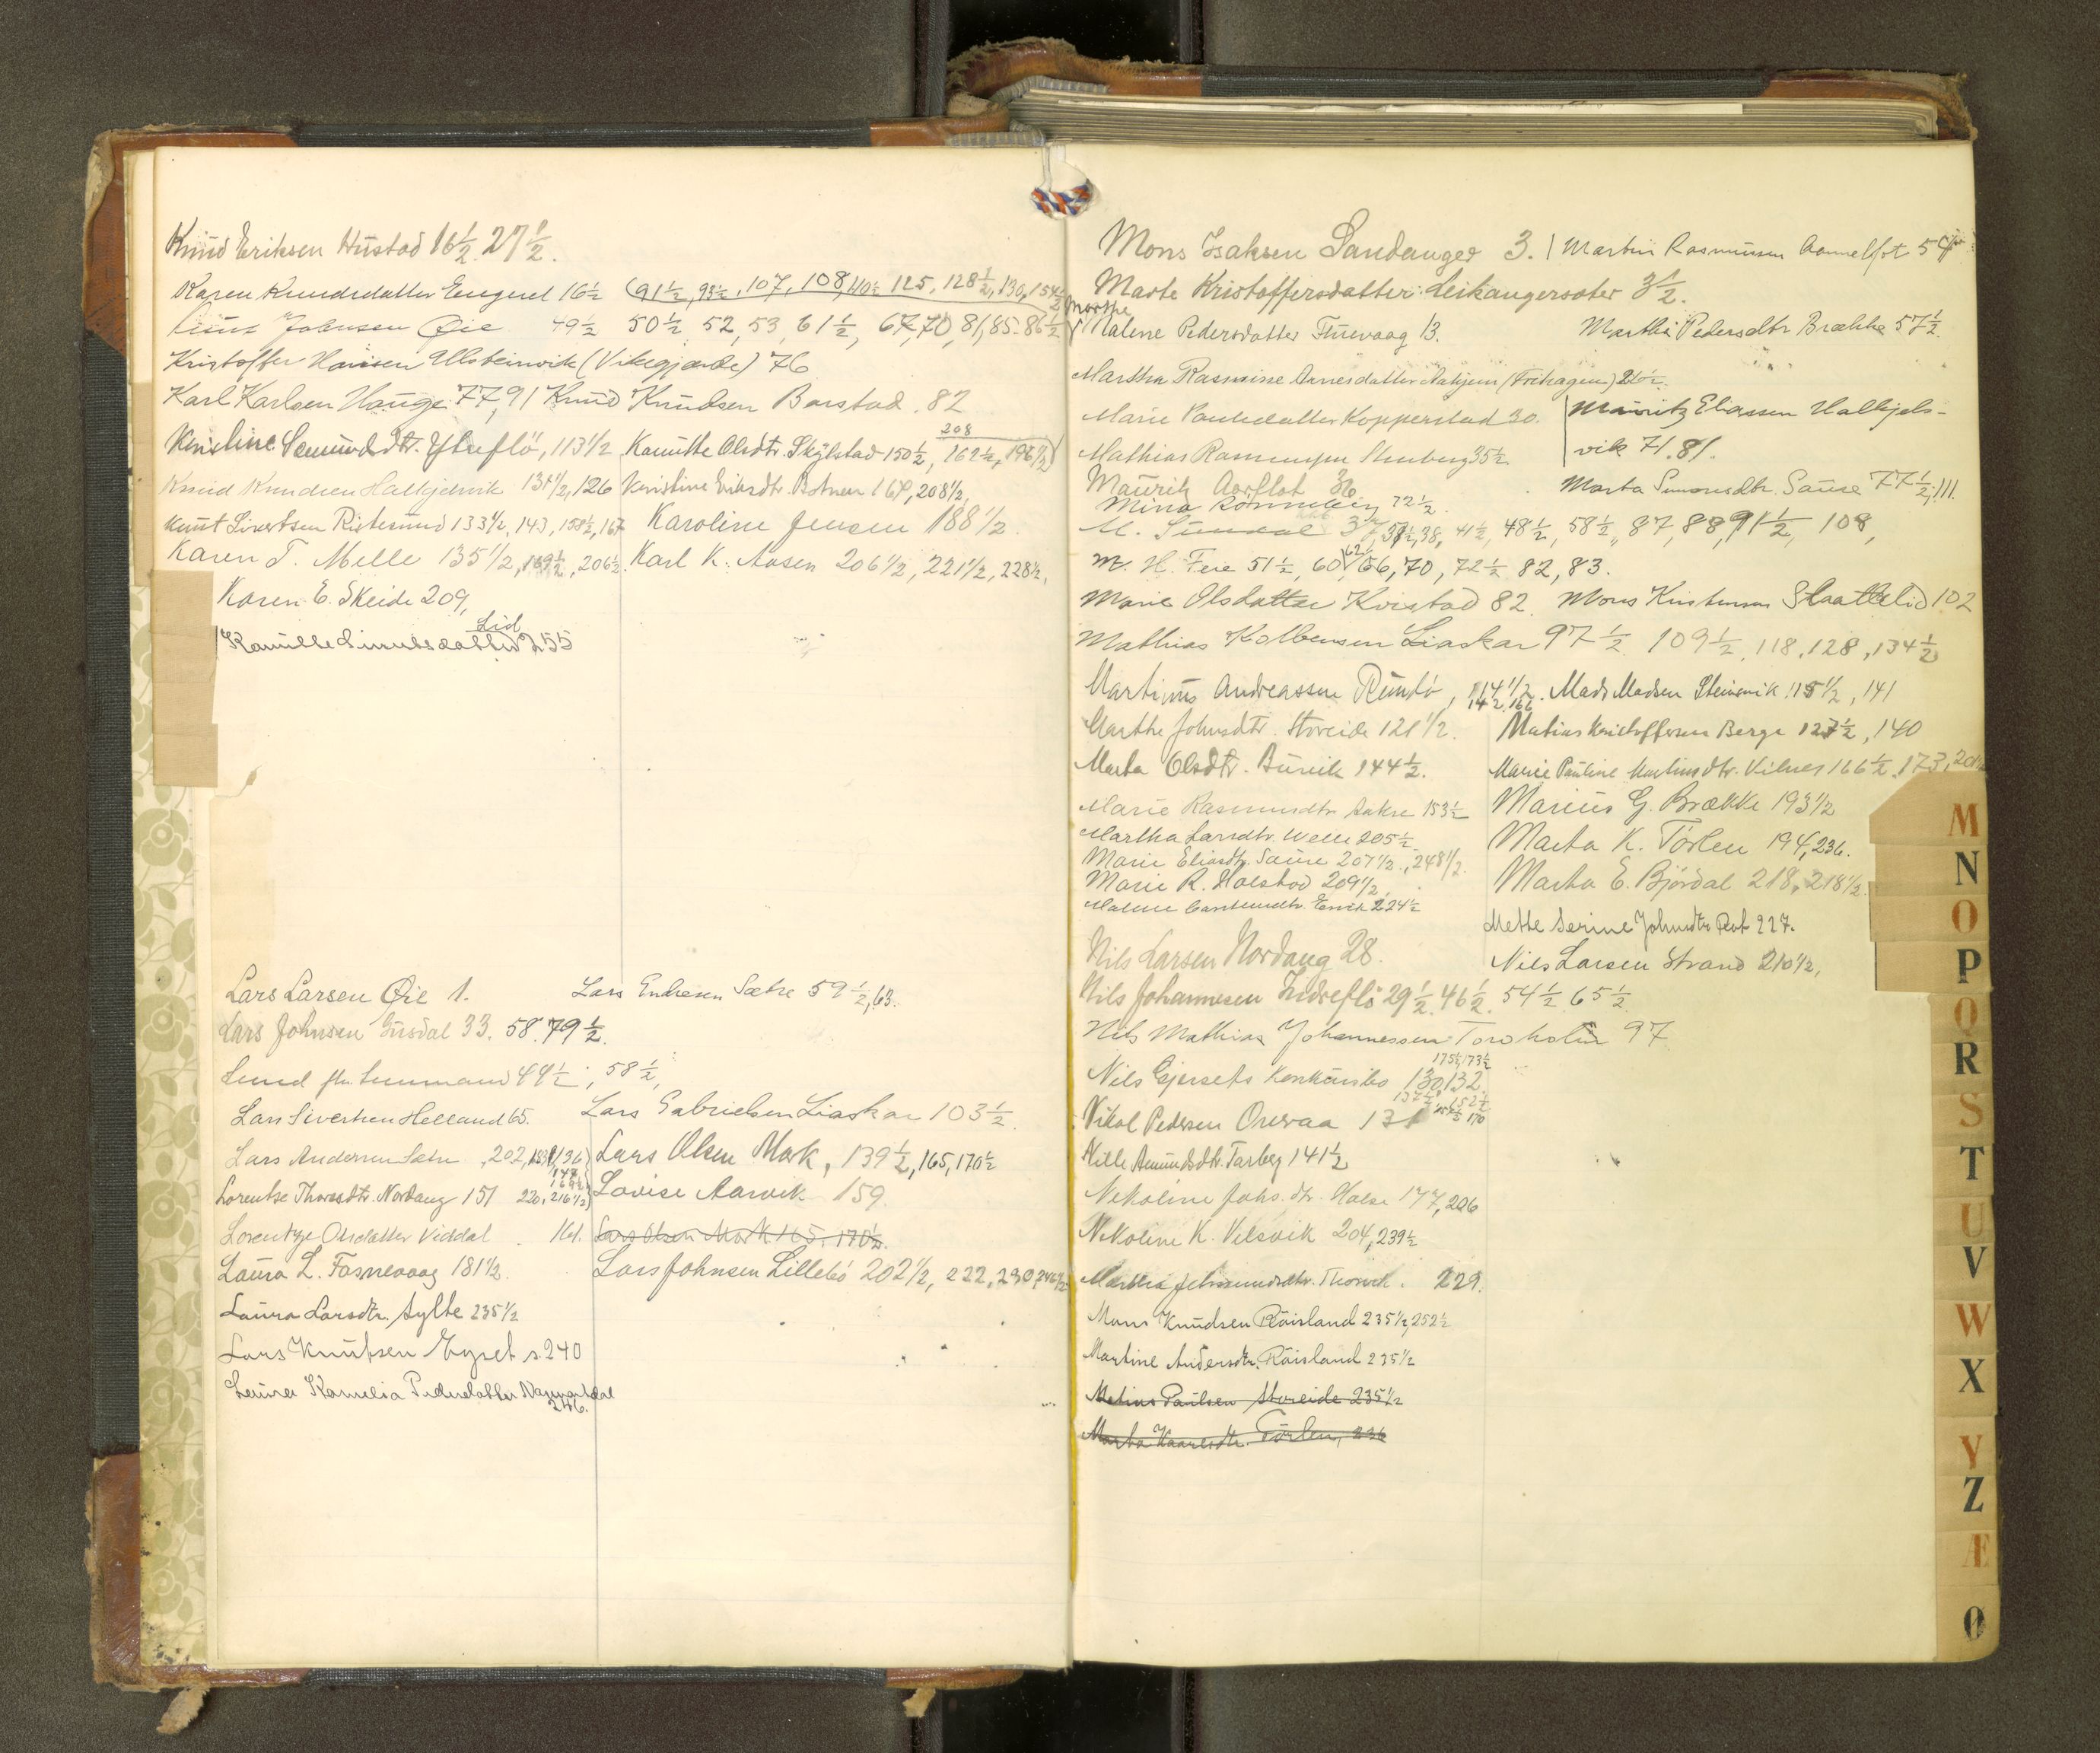 Knud Eriksen Hustad 16½ 27½.
Karen Knudsdatter 16½ (91½, 93½, 107, 108, 110½ 125, 128½, 130, 154½
Johnsen Øie 49½ 50½, 52, 53, 61½, 67, 70, 81, 85. 86½
Kristoffer Hansen Ulsteinvik (Vikegjærde) 76
Karl Karlsen Hauge 77, 91 Knud Knudsen Barstad. 82
Kristine Semundsdtr. Ytreflö, 113½ Kamitte Olsdtr. Skylstad 150½, 162½, 196½)
208
Knud Knudsen Halkjelsvik 131½, 126 Kristine Eriksdtr. Botnen 167, 208½,
Knut Sivertsen Ristesund 133½, 143, 158½, 167 Karoline Jensen 188½
Karen T. Melle 135½, 169½, 206½. Karl K. Aasen 206½, 221½, 228½,
Karen E. Skeide 209,
Lid
255
Lars Larsen Øie 1. Lars Endresen Sætre 59½, 63.
Lars Johnsen Gusdal 33. 58. 79½.
Lund 49½, 58½,
Lars Sivertsen Helland 65. Lars Gabrielsen Liaskar 103½
Lars Andersen Sætre, 202, 136 Lars Olsen Mork, 139½, 165, 170½
147
Lorentse Thorsdtr. Nordang 151 220, 216½) Lovise Aarvik 159.
Lorentze Olsdatter Viddal 161. Lars Olsen Mork 165, 170½.
Laura L. Fosnevaag 181½. Lars Johnsen Lillebö 202½, 222, 230, 246½
Laura Larsdtr. Sylte 235½
Lars Knutsen Eyset s. 240
Kamelia Pedersdatter
246.
Mons Isaksen Sandanger 3. | Martin Rasmussen 54
Marte Kristoffersdatter Leikangersæter 3½.
Marthe
Malene Pedersdatter Flusvaag 13. Marthe Pedersdtr Brække 57½.
Martha Rasmine Aarsethjem (Frihagen)
Marie Paulsdatter Kopperstad 30. Mauritz Eliassen Halkjels-
Mathias Rasmussen Stenberg 35½ vik 71. 81.
Maurits Aarflot 36 Marta Simonsdtr. Saure 77½, 111.
Mina Rönneberg 72½.
M. Sundal 37, 37½, 38, 41½, 48½, 58½, 87, 88, 91½, 108,
M. H. Fere 51½, 60, 62, 66, 70, 72½ 82, 83.
Marie Olsdatter Kvistad 82. Mons Kristensen Slaattelid 102
Mathias Kolbensen Liaskar 97½. 109½, 118, 128, 134½
Martinus Andreassen Rundö, 114½. Mads Madsen Steinsvik 115½, 141
142, 166
Marthe Johnsdtr. Storeide 121½. Matias Kristoffersen Berge 127½, 140
Marta Olsdtr. Burvik 144½. Marie Pauline Martinsdtr. Vilnes 166½, 173, 201½
Marie Rasmusdtr. Aakre 153½ Marius G. Brække 193½
Martha Larsdtr. Welle 205½ Marta K. Förlen 194, 236.
Marie Eliasdtr. Saure 207½, 248½.
Marie R. Halstad 209½, Marta E. Björdal 218, 218½.
Malene 224½
Mette Serine Johnsdtr 227.
Nils Larsen Nordang 28. Nils Larsen Strand 210½,
Nils Johannesen Indreflö 29½. 46½. 54½ 65½
Nils Mathias Johannessen Torvholm 97
175½ 173½
Nils Gjersets Konkursbo 130, 132.
137½ 152½
Nikol Pedersen Overaa 131 170
Nille Amundsdtr. Tarberg 141½
Nikoline Johs.dtr. Halse 177, 206
Nikoline K. Vilsvik 204, 239½
Martha 229.
Mons Knudsen Röisland 235½, 252½
Martine Andersdtr. Röisland 235½
Matias Paulsen Storeide 235½
Marta Kaaresdtr. Förlen, 236
M
N
O
P
Q
R
S
T
U
V
W
X
Y
Z
Æ
Ø